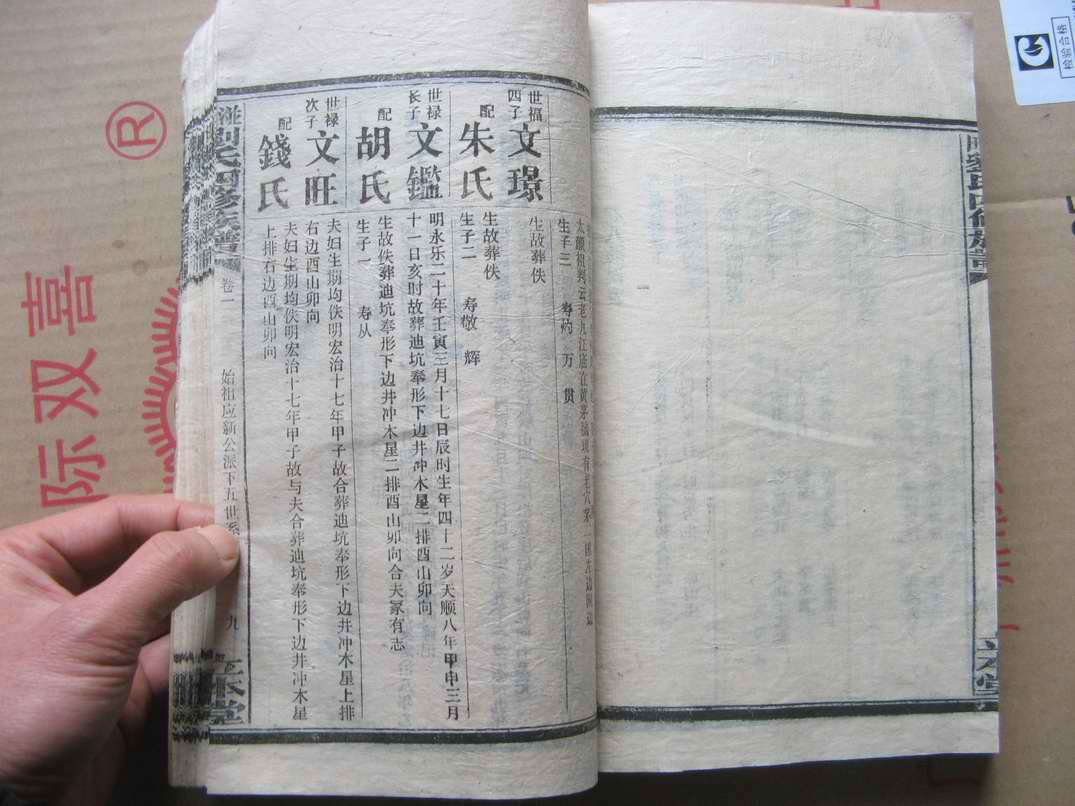 生子三 寿灼 万 贯
世福
四子
文璟
生故葬佚
配
朱氏
生故葬佚
生子二 寿敬 辉
世禄
长子
文鑑
明永乐二十年壬寅三月十七日辰时生年四十二岁天顺八年甲申三月
十一日亥时故葬迪坑奉形下边井冲木星二排酉山卯向
配
胡氏
生故佚葬迪坑奉形下边井冲木星二排酉山卯向合夫冢有志
生子一 寿从
世禄
次子
文旺
夫妇生期均佚明宏治十七年甲子故合葬迪坑奉形下边井冲木星上排
右边酉山卯向
配
錢氏
夫妇生期均佚明宏治十七年甲子故与夫合葬迪坑奉形下边井冲木星
上排右边酉山卯向
卷一
始祖应新公派下五世系
九
际双喜
®